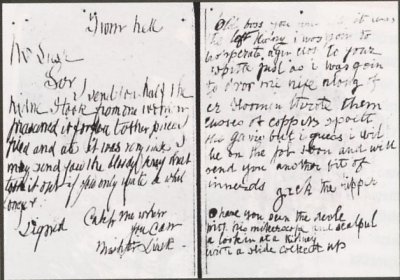 From hell
Mr Lusk
Sor
I send you half the
Kidne I took from one women
prasarved it for you tother piece I
fried and ate it was very nise I
may send you the bloody knif that
took it out if you only wate a whil
longer
signed Catch me when
you can
Mishter Lusk
Old boss you was rite it was
the left kidny i was goin to
hoperate agin close to your
ospitle just as i was goin
to dror mi nife along of
er bloomin throte them
cusses of coppers spoilt
the game but i guess i wil
be on the job soon and will
send you another bit of
innerds Jack the ripper
O have you seen the devle
with his mikerscope and scalpul
a lookin at a Kidney
with a slide cocked up